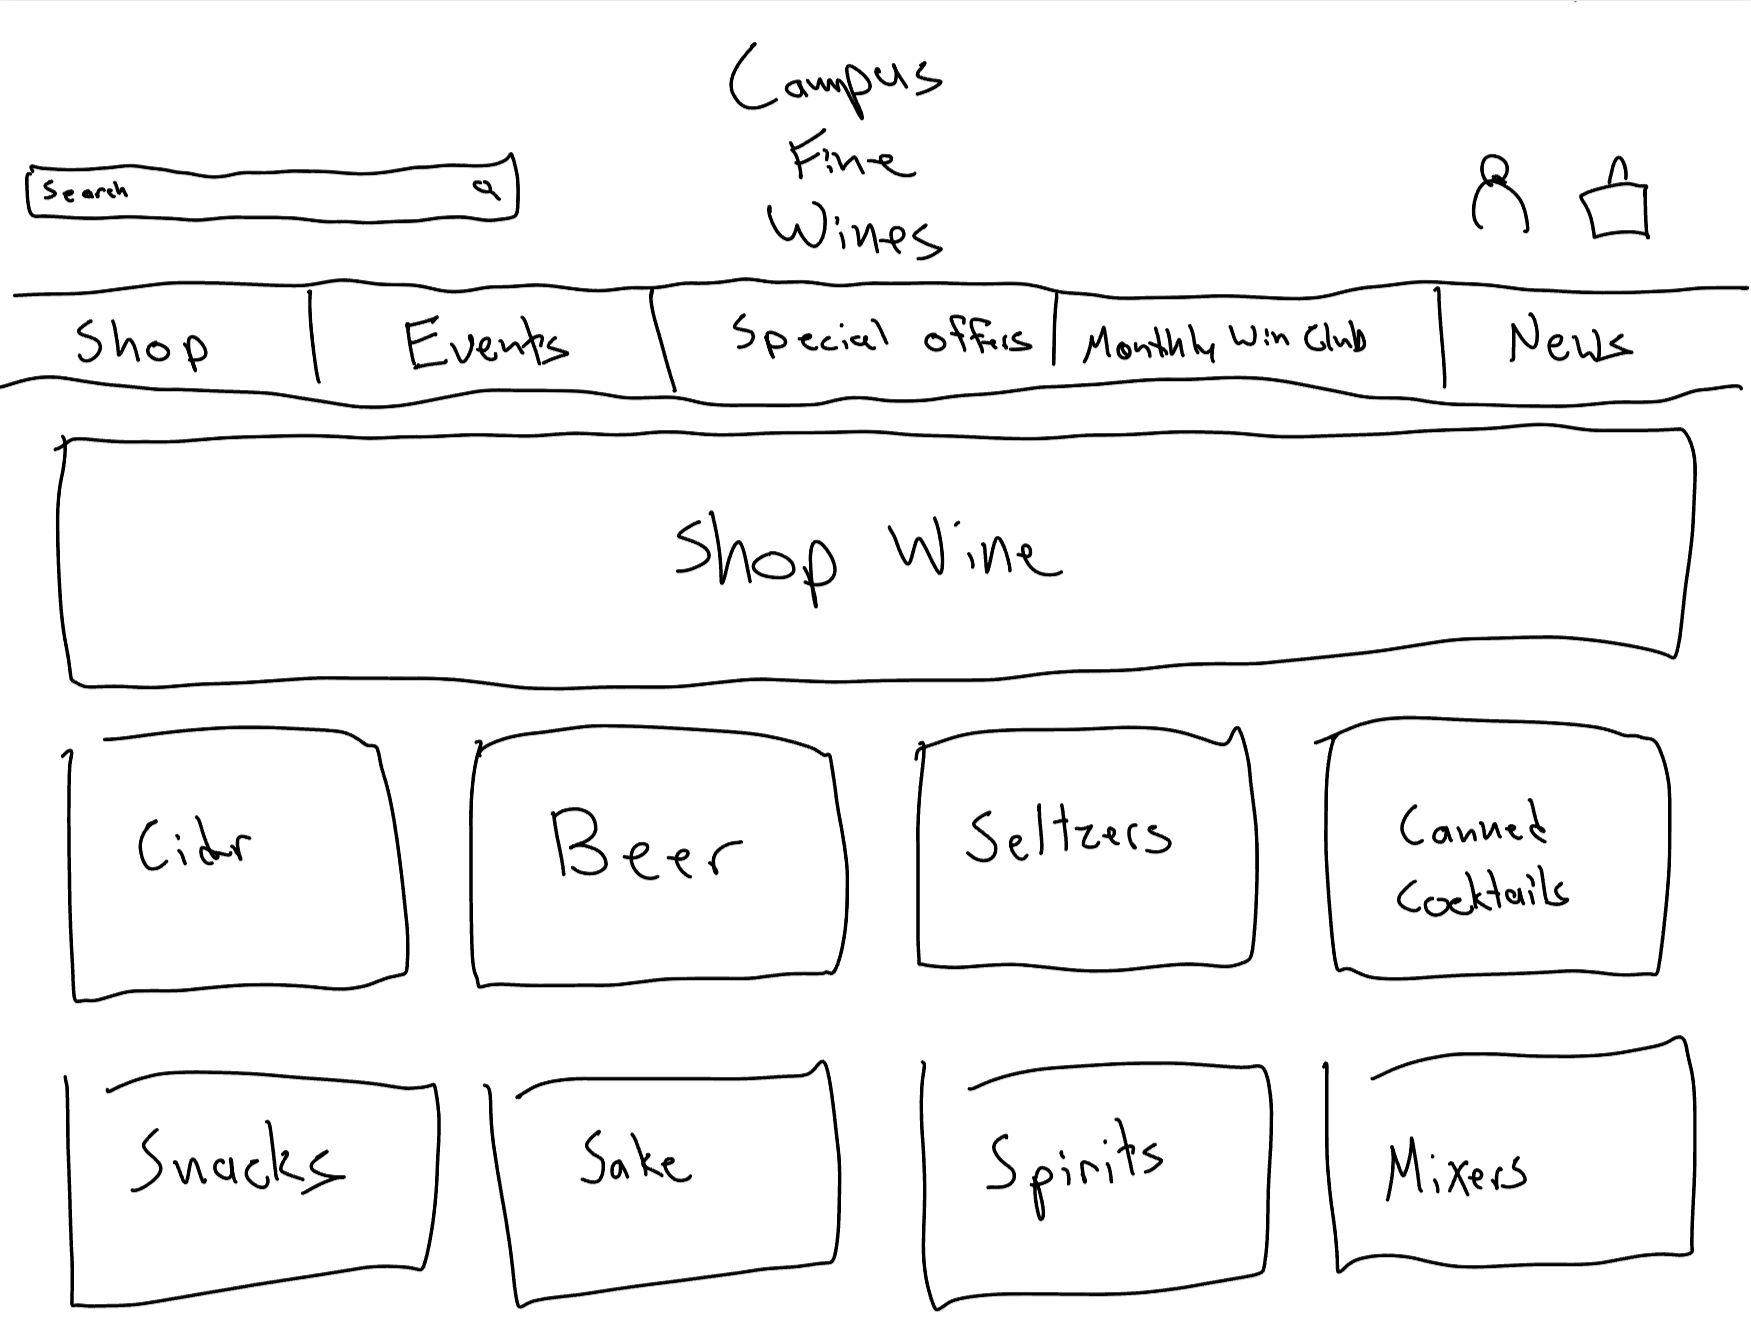 Campus
Fine
Wines
Search
Shop
Events
Special offers
Monthly Win Club
News
Shop Wine
Cidr
Beer
Seltzers
Canned
Cocktails
Snacks
Sake
Spirits
Mixers